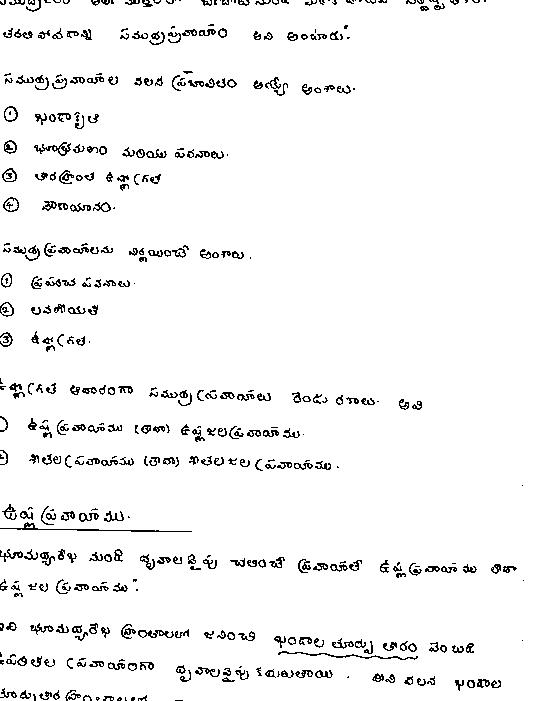 తరలి పోవడాన్ని సముద్ర ప్రవాహం అని అంటారు".
సముద్ర ప్రవాహాల వలన ప్రభావితం అయ్యే అంశాలు.
① ఖండాకృతి
② భూభ్రమణం మరియు పవనాలు.
③ తీరప్రాంత ఉష్ణోగ్రత
④ నౌకాయానం.
సముద్ర ప్రవాహాలను నిర్ణయించే అంశాలు.
① ప్రపంచ పవనాలు.
② లవణీయత
③ ఉష్ణోగ్రత.
ఉష్ణోగ్రత ఆధారంగా సముద్ర ప్రవాహాలు రెండు రకాలు. అవి
ఉష్ణ ప్రవాహము (లేదా) ఉష్ణజలప్రవాహము.
శీతల ప్రవాహము (లేదా) శీతలజల ప్రవాహము.
ఉష్ణ ప్రవాహము.
భూమధ్యరేఖ నుండి ధృవాల వైపు చలించే ప్రవాహాలే ఉష్ణ ప్రవాహము లేదా
ఉష్ణ జల ప్రవాహము".
ఇవి భూమధ్యరేఖ ప్రాంతాలలో జనించి ఖండాల తూర్పు తీరం వెంబడి
ఉపరితల ప్రవాహంగా ధృవాలవైపు కదులుతాయి. వీని వలన ఖండాల